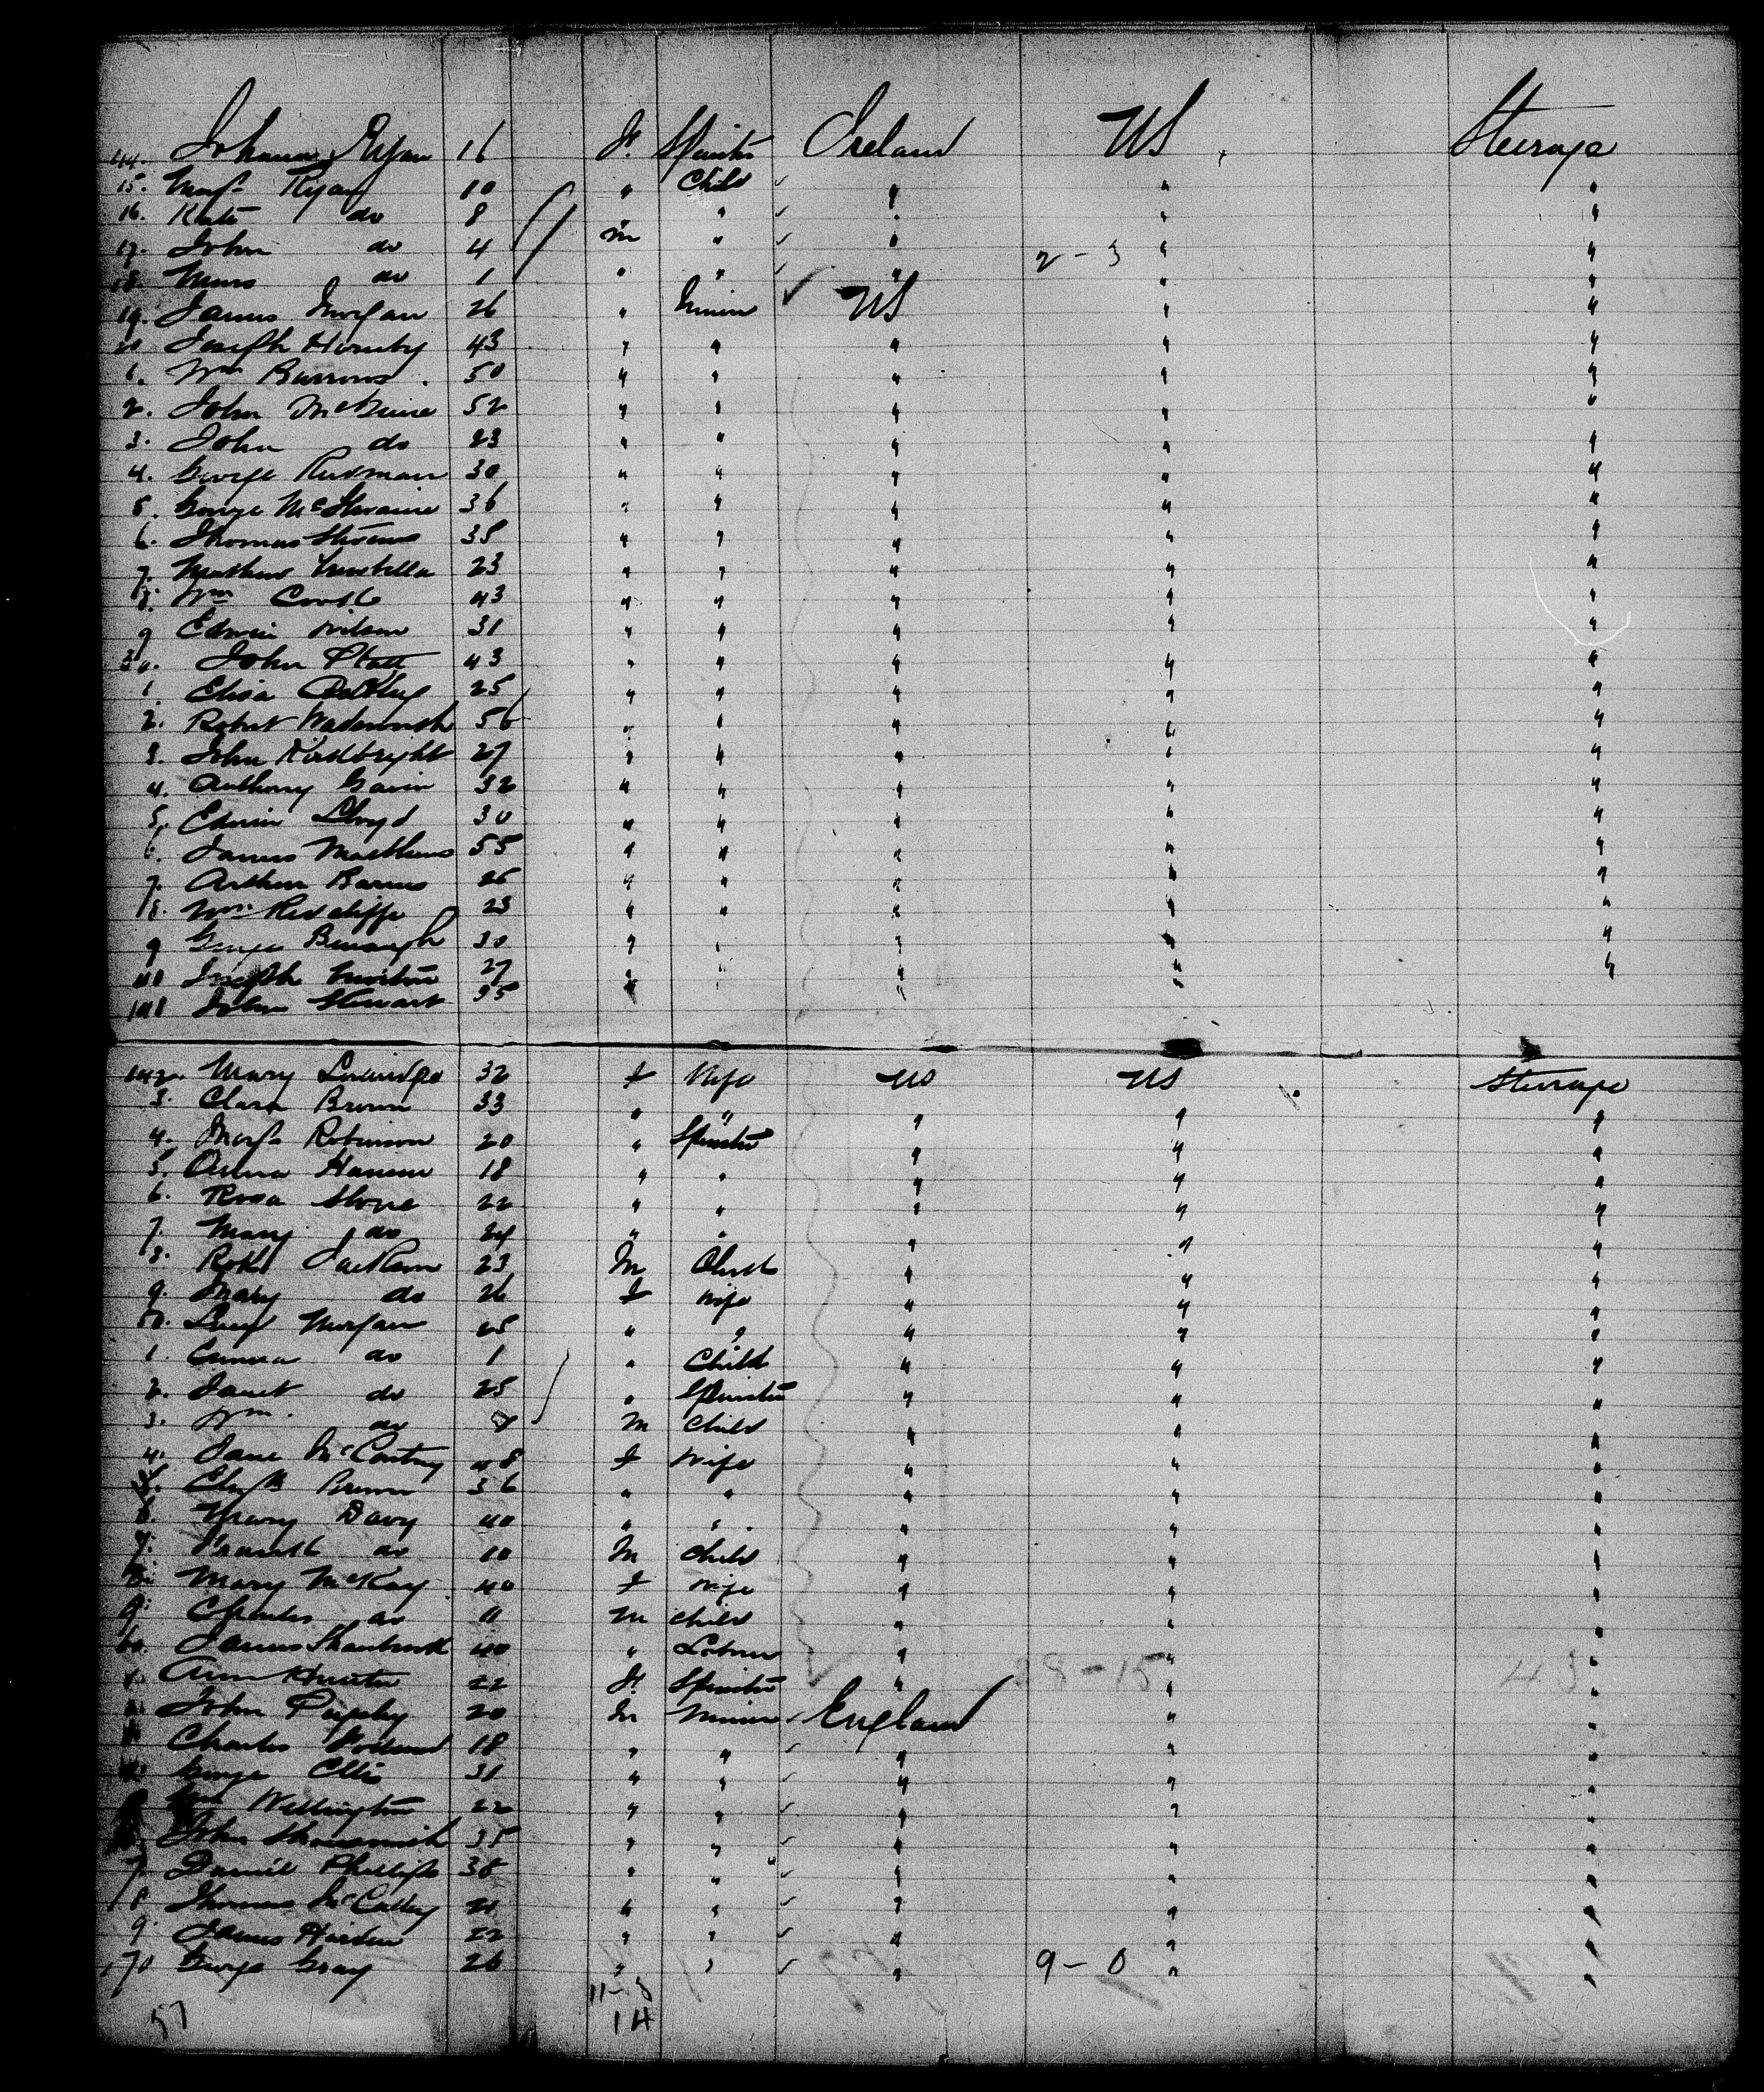 14. Johanna Ryan 16 F. Spinster Ireland US Steerage
15. Margt Ryan 10 " Child " " "
16. Kate do 8 " " " " "
17. John do 4 m " " 2-3 " "
18. do 1 " " " " "
19. James Morgan 26 " Miner US " "
20 Joseph Hornby 43 " " " " "
1. Wm Barrows. 50 " " " " "
2. John McGuire 52 " " " " "
3. John do 23 " " " " "
4. George Rudman 30 " " " " "
5. George McIlwaine 36 " " " " "
6. Thomas Stevens 35 " " " " "
7. Mathew 23 " " " " "
8. Wm Cooke 43 " " " " "
9 Edwin Wilson 31 " " " " "
30. John Platt 43 " " " " "
1. Elisa 25 " " " " "
2. Robert Wadsworth 56 " " " " "
3. John Kirkbright 27 " " " " "
4. Anthony Gavin 32 " " " " "
5. Edwin Lloyd 30 " " " " "
6. James Matthews 55 " " " " "
7. Arthur Barnes 26 " " " " "
8. Wm Redcliffe 23 " " " " "
9 George Burough 30 " " " " "
40 Joseph 27 " " " " "
141 John Stewart 35 " " " "
142. Mary 32 F Wife US US Steerage
3. Clara Brown 33 " " " " "
4. Margt Robinson 20 " Spinster " " "
5. Anna 18 " " " " "
6. Rosa Stone 22 " " " " "
7. Mary do 24 " " " " "
8. Robt Jackson 23 M Clerk " " "
9. Mary do 26 F Wife " " "
50. Lucy Morgan 25 " " " " "
1. Emma do 1 " Child " " "
2. Janet do 25 " Spinster " " "
3. Wm. do M Child " " "
4. Jane McCartney 48 F Wife " " "
5. Elizth Brown 36 " " " " "
6. Mary Davy 40 " " " " "
7. do 10 M Child " " "
8. Mary McKay 40 F Wife " " "
9. Charles do 11 M Child " " "
60. James 40 " Laborer " " "
1. Ann Hunter 22 F. Spinster " 28-15 " 43 "
2. John 20 M Miner England " "
3 Charles 18 " " " " "
4. George Ellis 31 " " " " "
5 Wm Wellington 22 " " " " "
6. John 35 " " " " "
7. Daniel Phillips 38 " " " " "
8 Thomas McCalley 21 " " " " "
9. James Harden 22 " " " " "
170 George Gray 26 " " " 9-0 " "
11-3
57 14